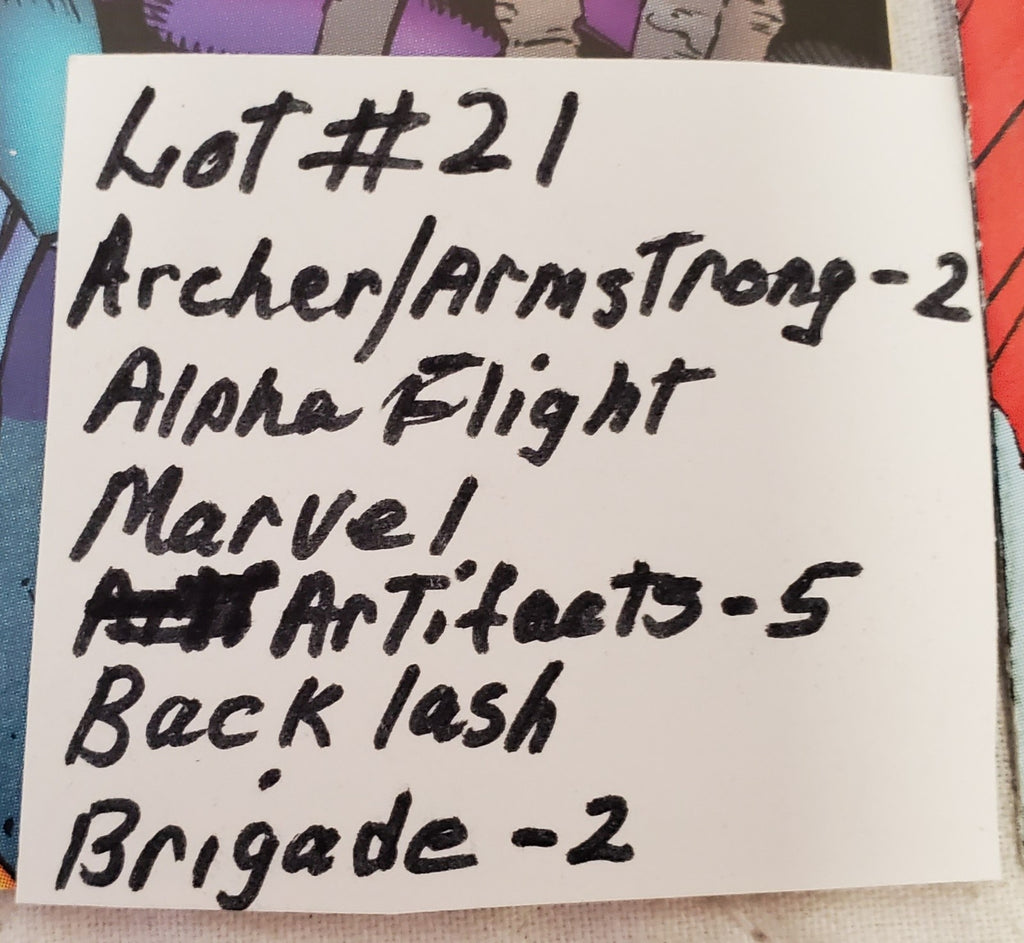 Lot #21
Archer/Armstrong-2
Alpha Flight
Marvel
Artifacts-5
Back lash
Brigade-2